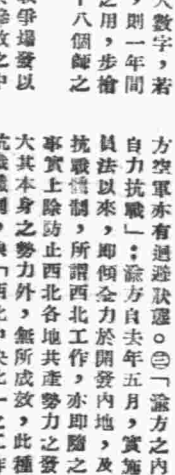 大數字，若
，則一年間
之用，步槍
十八個師之
爭場發以
方空軍亦有迴避狀態。㊂「渝方之內
自力抗戰」：渝方自去年五月，實施
員法以來，即傾全力於開發內地，及
抗戰體制，所謂西北工作，亦即隨之
事實上除防止西北各地共產勢力之發
大其本身之勢力外，無所成效，此種